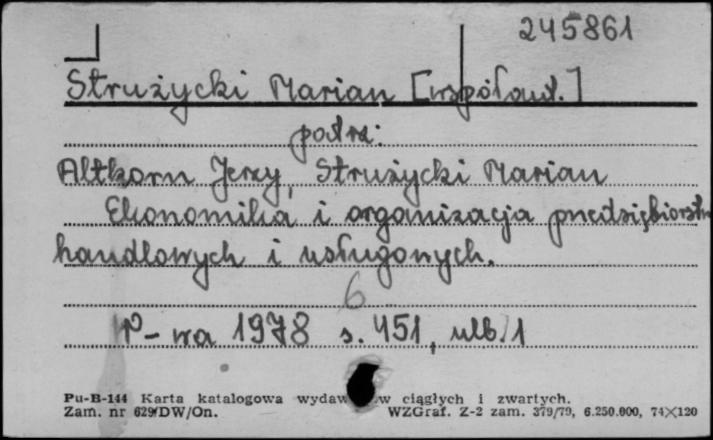 245861
Strużycki Marian [współaut.]
patrz:
Altkorn Jerzy, Strużycki Marian
Ekonomika i organizacja przedsiębiorstw
handlowych i usługowych.
6
W-wa 1978 s. 451, nlb. 1
Pu-B-144 Karta katalogowa wydaw w ciągłych i zwartych.
Zam. nr 629/DW/On. WZGraf. Z-2 zam. 379/79, 6.250.000, 74×120